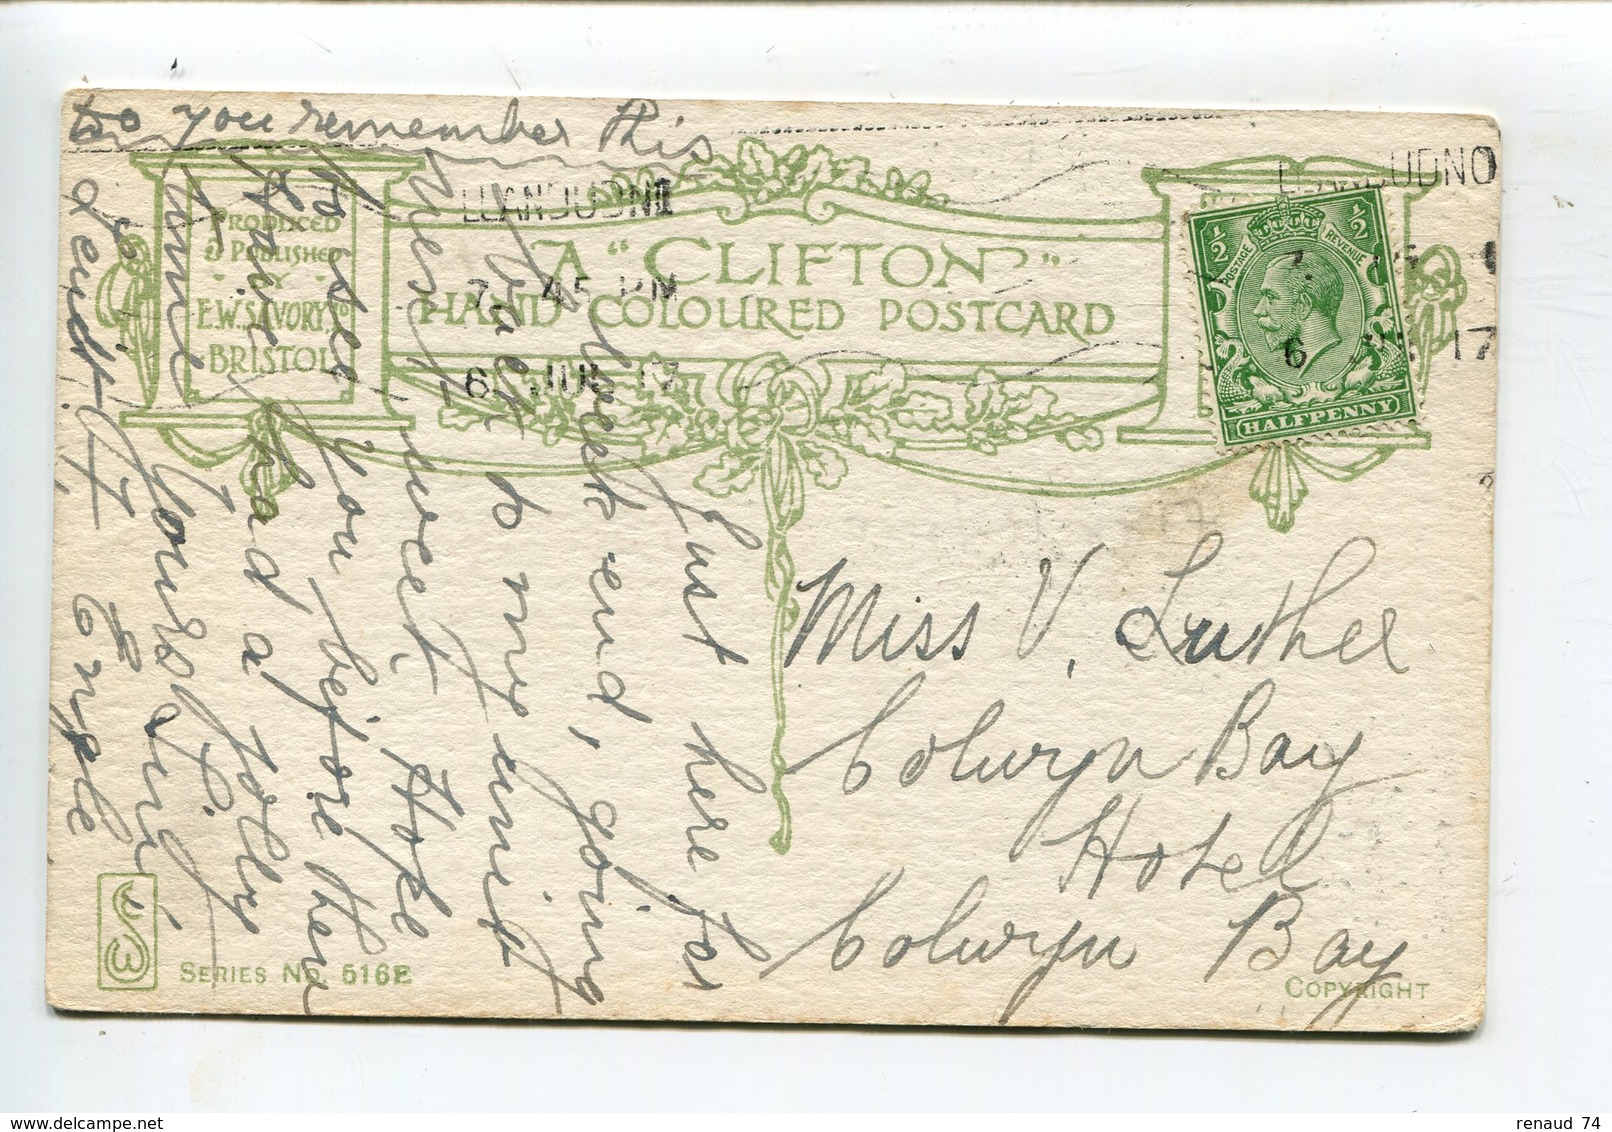 to you remember this
LLANDUDNO
7. 45 PM
6 JUL 17
LLANDUDNO
6 JUL 17
PRODUCED
& PUBLISHED
BY
E.W. SAVORY, LTD
BRISTOL
A "CLIFTON"
HAND COLOURED POSTCARD
½ ½
POSTAGE REVENUE
HALFPENNY
Just here for
Week-end, going
back to my unit
next week. Hope
to see you before then
Have had a jolly
time
Yours
Miss V. Luther
Colwyn Bay
Hotel
Colwyn Bay
SERIES No. 516E
COPYRIGHT
renaud 74